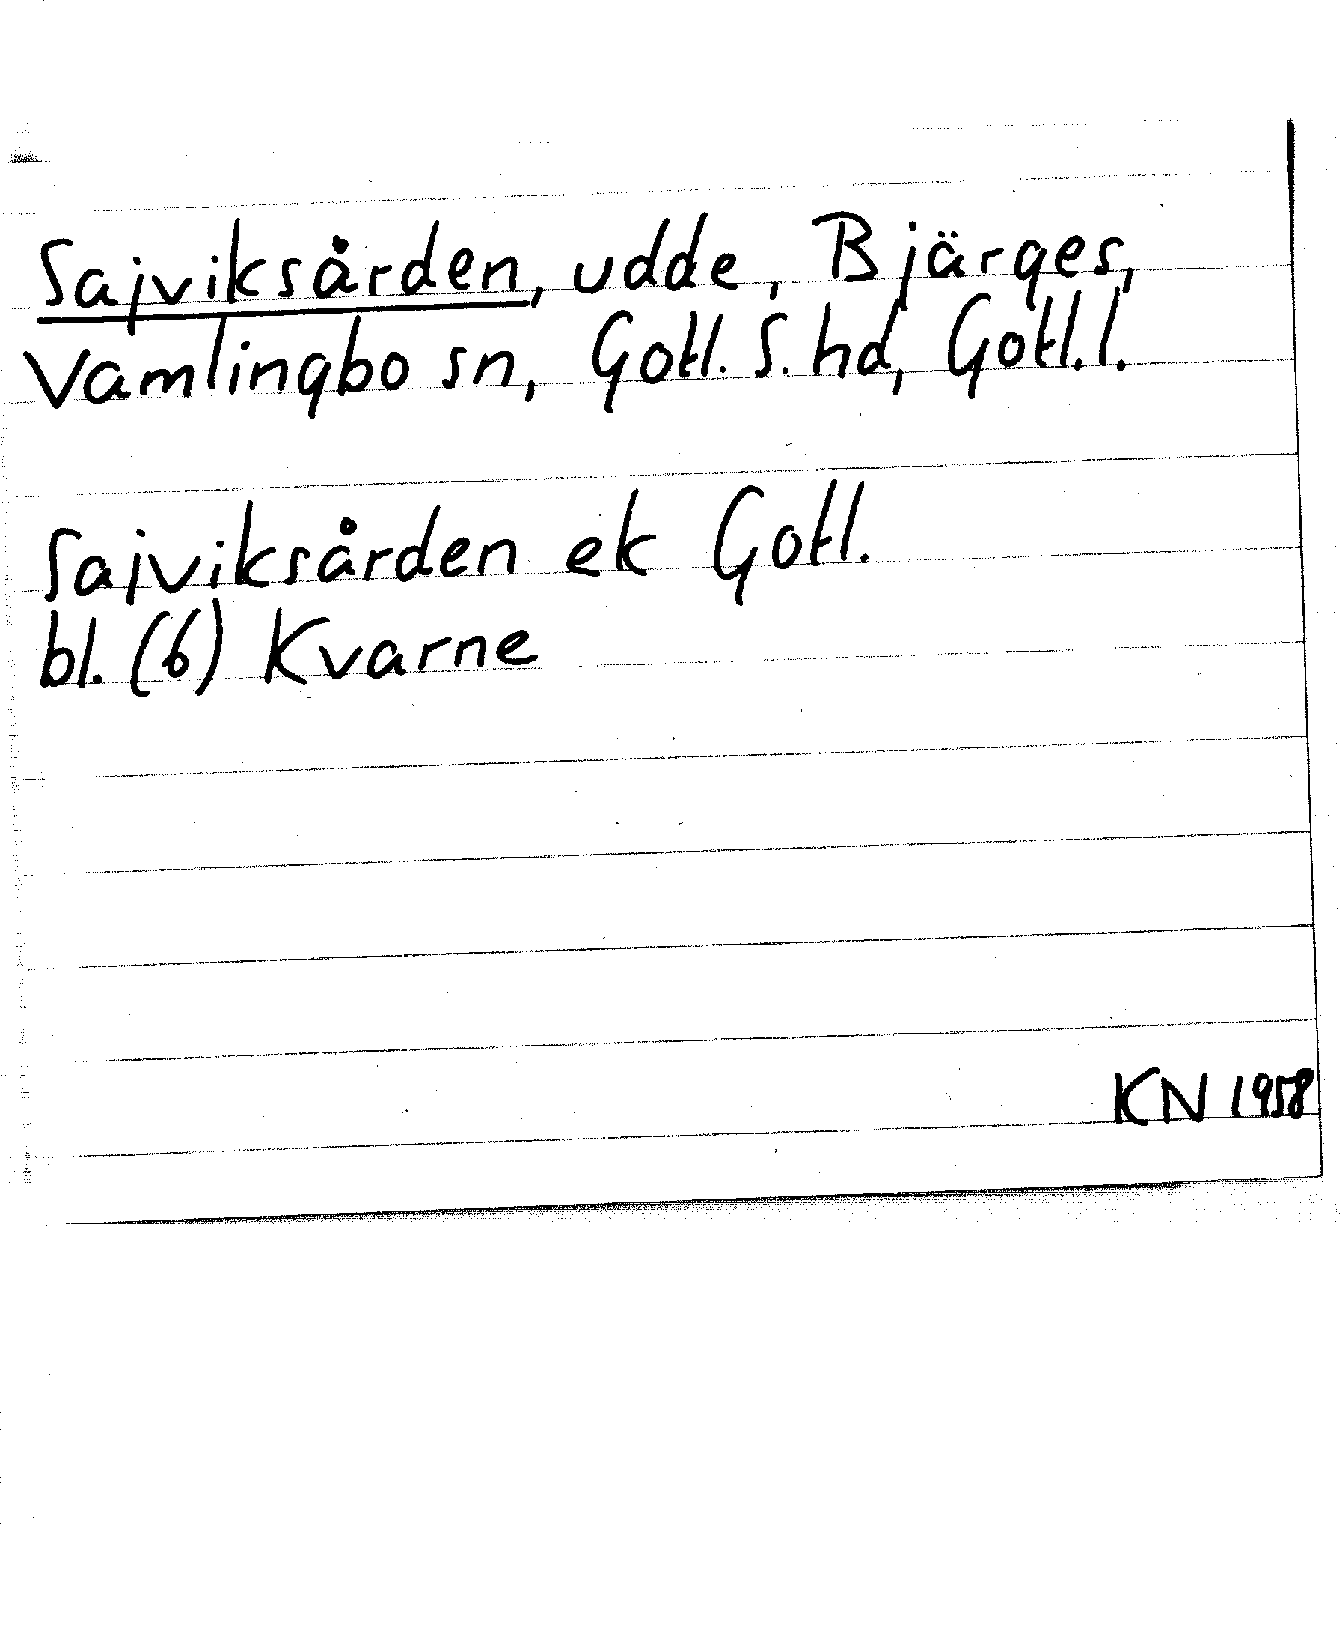 Sajviksården, udde, Bjärges,
Vamlingbo sn, Gotl. S. hd, Gotl. l.
Sajviksården ek Gotl.
bl. (6) Kvarne
KN 1958